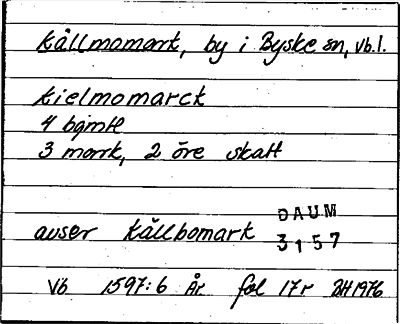 Kållmomark, by i Byske sn, vb.l.
Kielmomarck
4 bgmtl
3 mark, 2 öre skatt
DAUM
avser Kållbomark 3157
Vb 1597:6 År fol 17r BH 1976